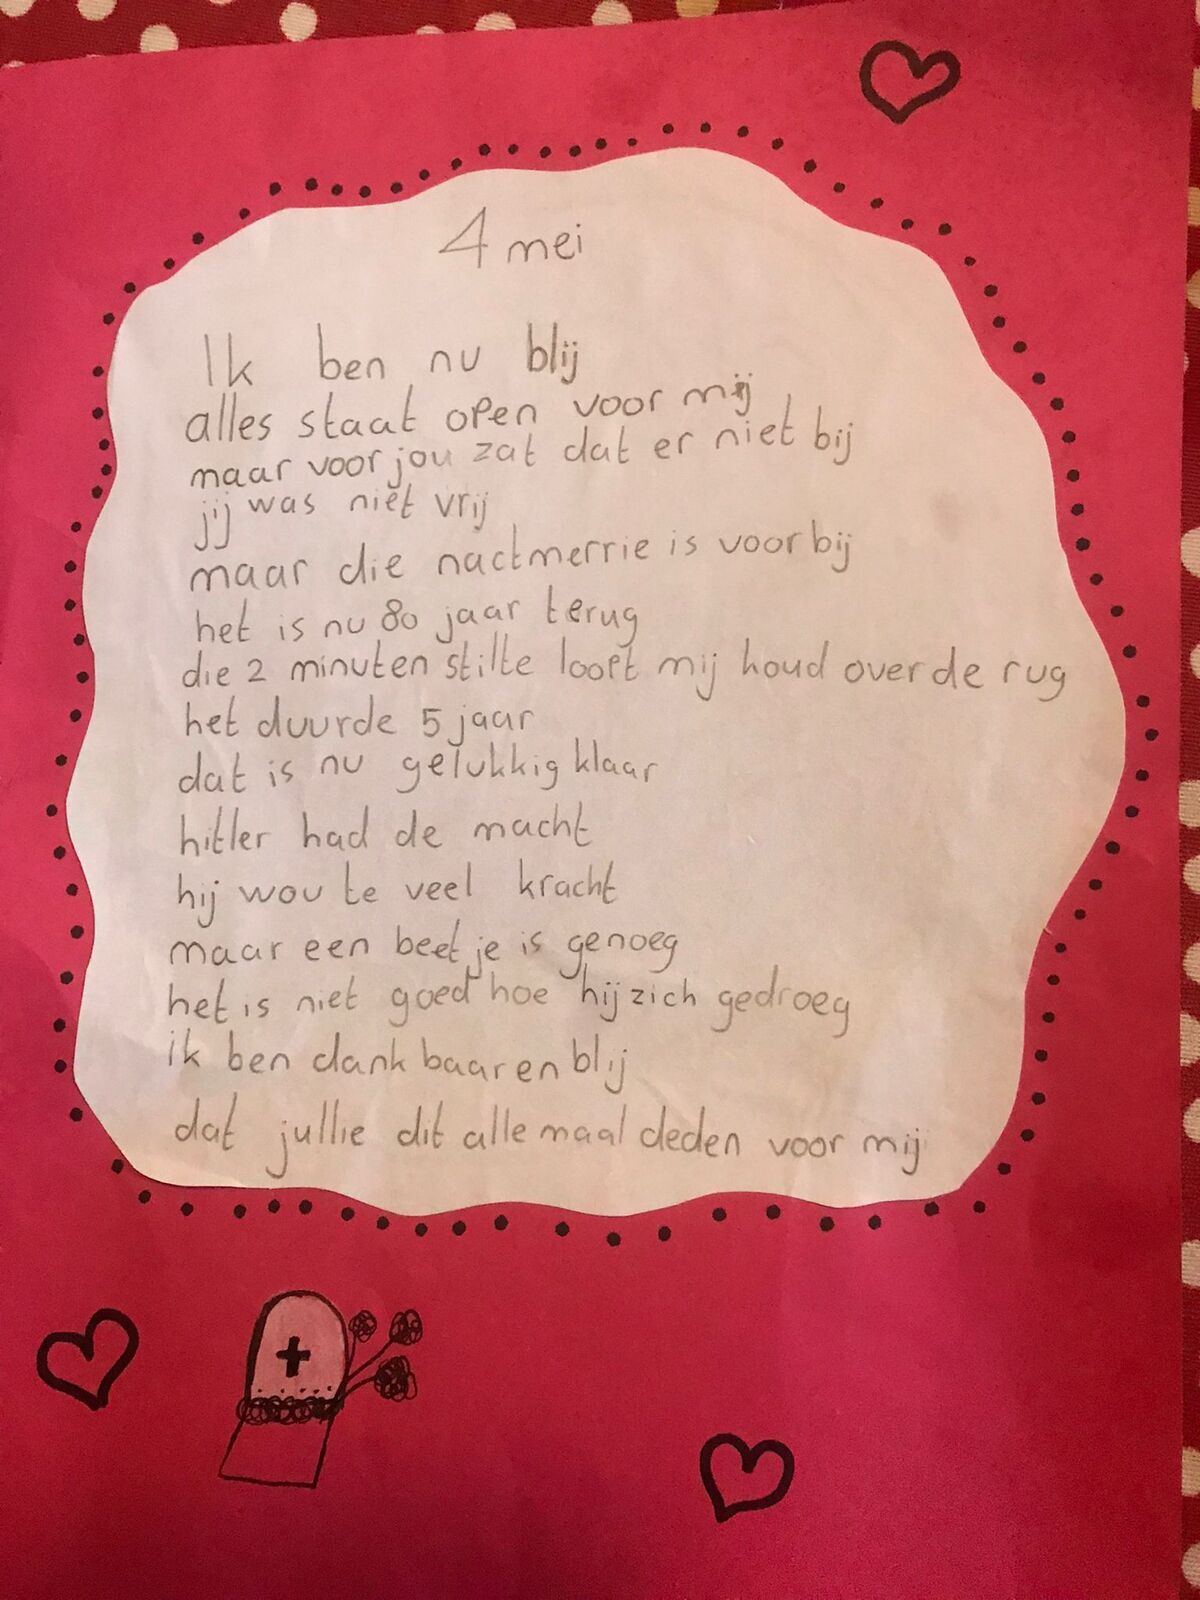 4 mei
Ik ben nu blij
alles staat open voor mij
maar voor jou zat dat er niet bij
jij was niet vrij
maar die nactmerrie is voorbij
het is nu 80 jaar terug
die 2 minuten stilte loopt mij houd over de rug
het duurde 5 jaar
dat is nu gelukkig klaar
hitler had de macht
hij wou te veel kracht
maar een beetje is genoeg
het is niet goed hoe hij zich gedroeg
ik ben dankbaar en blij
dat jullie dit allemaal deden voor mij